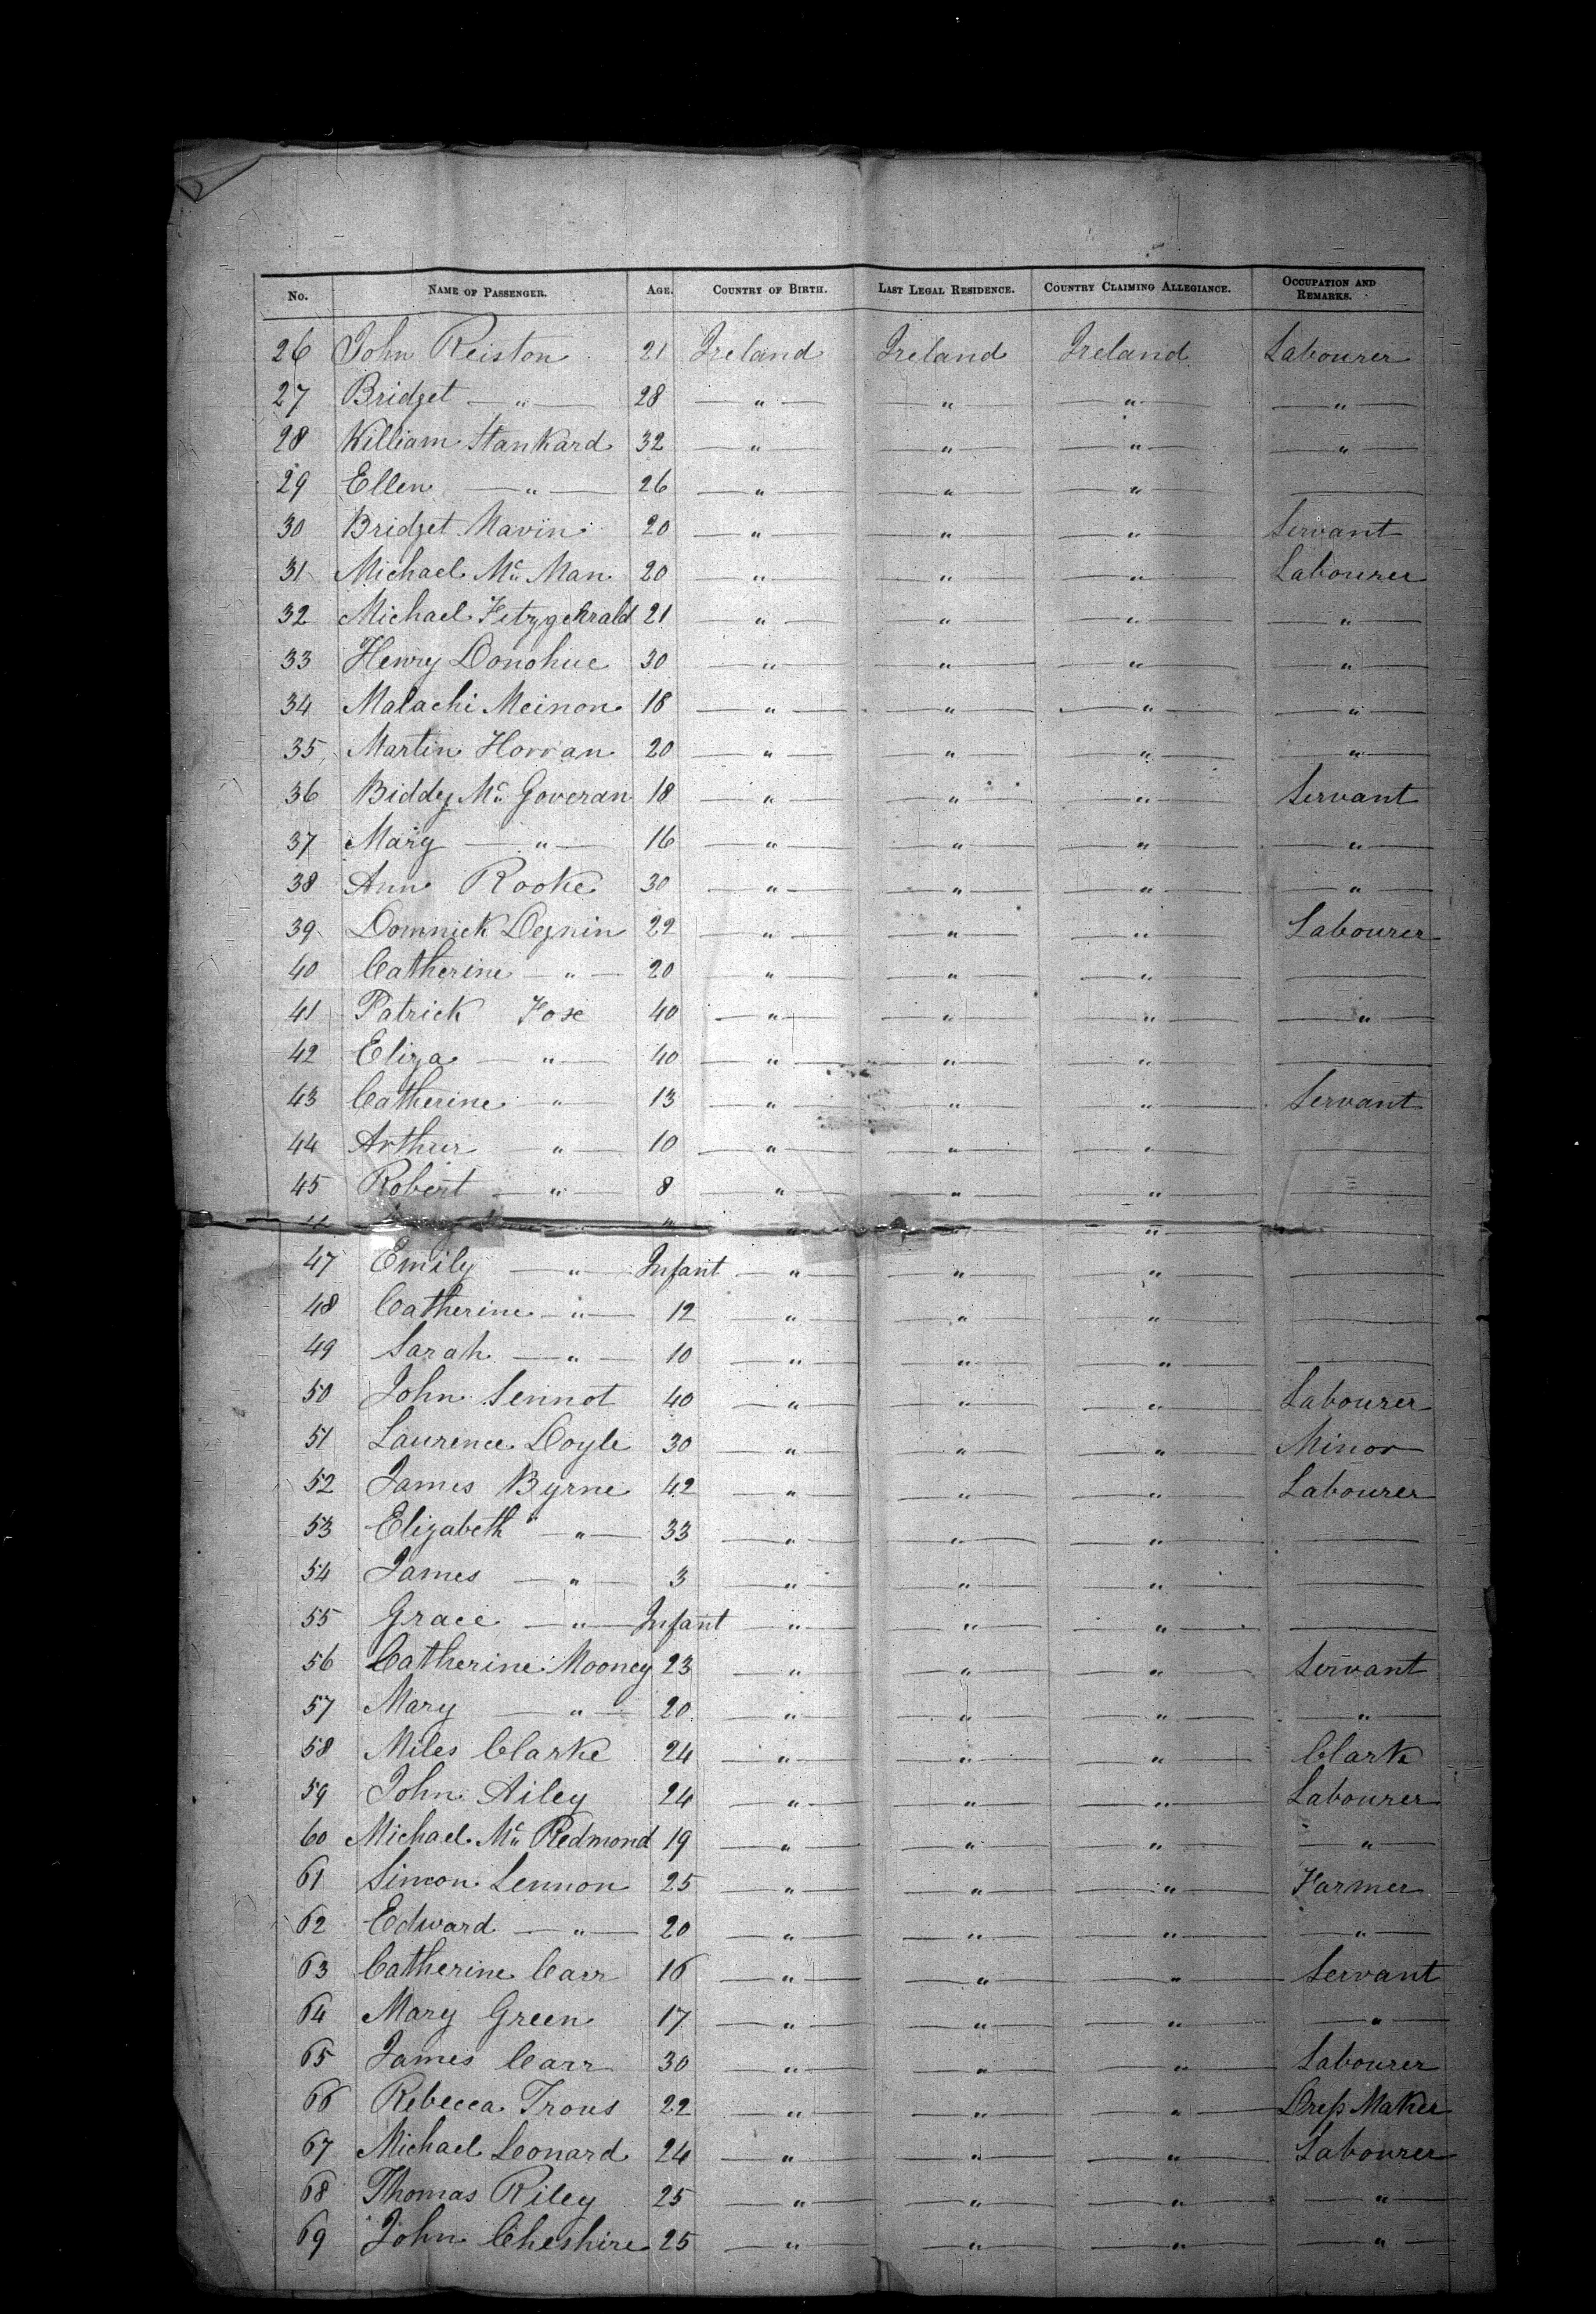 No. NAME OF PASSENGER. AGE. COUNTRY OF BIRTH. LAST LEGAL RESIDENCE. COUNTRY CLAIMING ALLEGIANCE. OCCUPATION AND REMARKS.
26 John Reiston 21 Ireland Ireland Ireland Labourer
27 Bridget — " — 28 — " — — " — — " — — " —
28 William Stankard 32 — " — — " — — " — — " —
29 Ellen — " — 26 — " — — " — — " — —
30 Bridget Navin 20 — " — — " — — " — Servant
31 Michael Mc Man 20 — " — — " — — " — Labourer
32 Michael Fitzgehrald 21 — " — — " — — " — — " —
33 Henry Donohue 30 — " — — " — — " — — " —
34 Malachi Meinon 18 — " — — " — — " — — " —
35 Martin Horran 20 — " — — " — — " — — " —
36 Biddy Mc Goveran 18 — " — — " — — " — Servant
37 Mary — " — 16 — " — — " — — " — — " —
38 Ann Rooke 30 — " — — " — — " — — " —
39 Domnick Degnin 22 — " — — " — — " — Labourer
40 Catherine — " — 20 — " — — " — — " — —
41 Patrick Fose 40 — " — — " — — " — — " —
42 Eliza — " — 40 — " — — " — — " — —
43 Catherine — " — 13 — " — — " — — " — Servant
44 Arthur — " — 10 — " — — " — — " — —
45 Robert — " — 8 — " — — " — — " — —
" — " — — " — —
47 Emily — " — Infant — " — — " — — " — —
48 Catherine — " — 12 — " — — " — — " — —
49 Sarah — " — 10 — " — — " — — " — —
50 John Sennot 40 — " — — " — — " — Labourer
51 Laurence Doyle 30 — " — — " — — " — Minor
52 James Byrne 42 — " — — " — — " — Labourer
53 Elizabeth — " — 33 — " — — " — — " — —
54 James — " — 3 — " — — " — — " — —
55 Grace — " — Infant — " — — " — — " — —
56 Catherine Mooney 23 — " — — " — — " — Servant
57 Mary — " — 20 — " — — " — — " — — " —
58 Miles Clarke 24 — " — — " — — " — Clark
59 John Ailey 24 — " — — " — — " — Labourer
60 Michael Mc Redmond 19 — " — — " — — " — — " —
61 Simon Lennon 25 — " — — " — — " — Farmer
62 Edward — " — 20 — " — — " — — " — — " —
63 Catherine Carr 16 — " — — " — — " — Servant
64 Mary Green 17 — " — — " — — " — — " —
65 James Carr 30 — " — — " — — " — Labourer
66 Rebecca Trous 22 — " — — " — — " — Dress Maker
67 Michael Leonard 24 — " — — " — — " — Labourer
68 Thomas Riley 25 — " — — " — — " — — " —
69 John Cheshire 25 — " — — " — — " — — " —